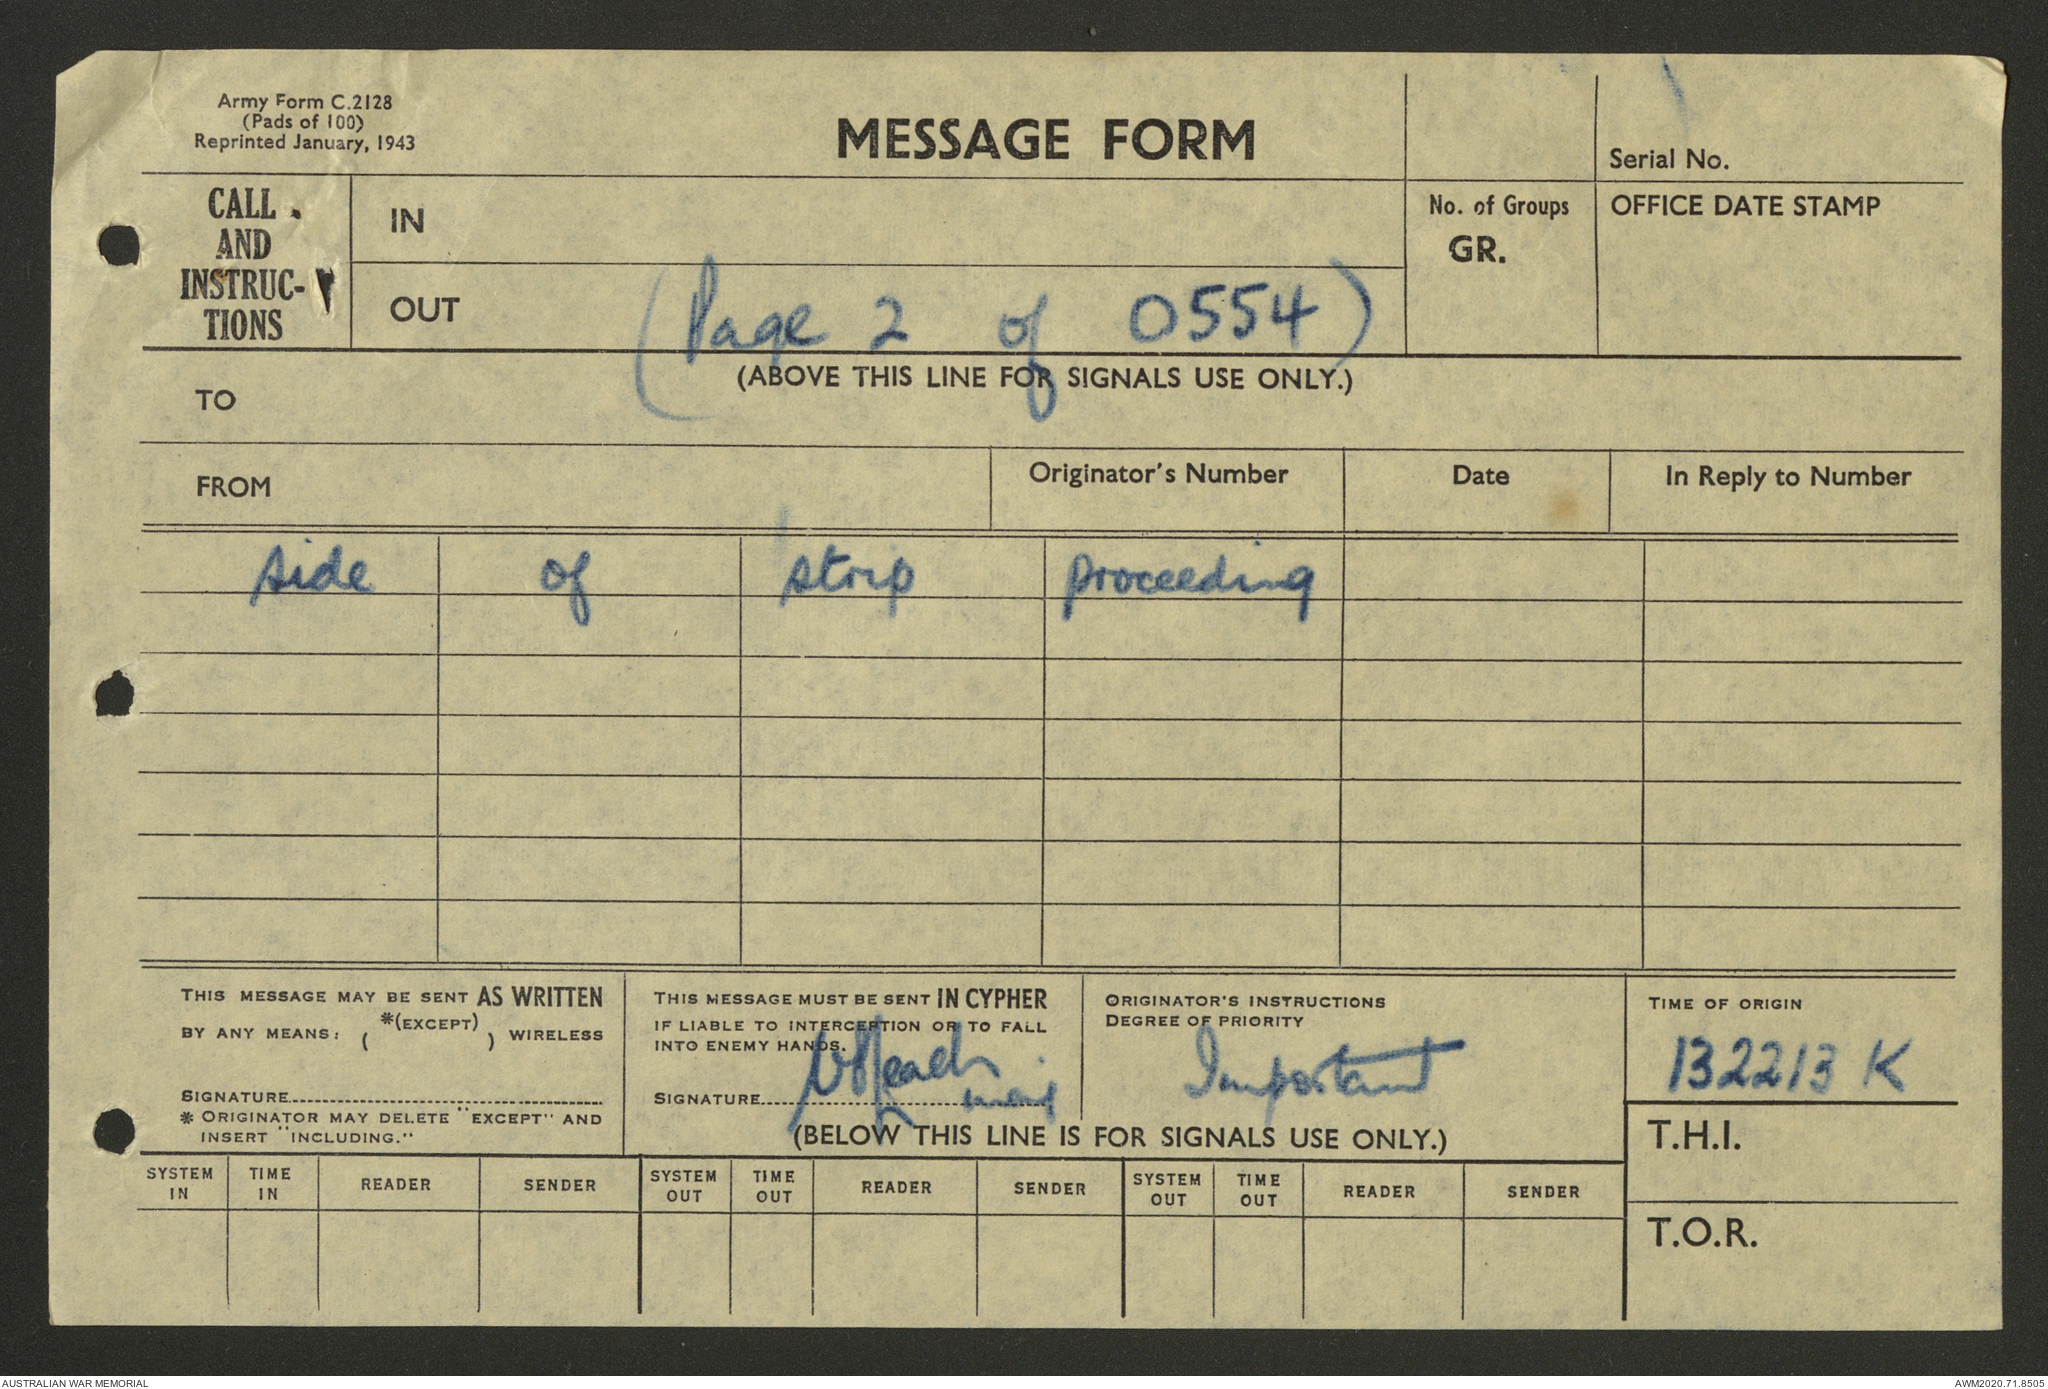 Army Form C.2128
(Pads of 100)
Reprinted January, 1943
MESSAGE FORM
Serial No.
CALL
AND
INSTRUC-
TIONS
IN
OUT
(Page 2 of 0554)
No. of Groups
GR.
OFFICE DATE STAMP
(ABOVE THIS LINE FOR SIGNALS USE ONLY.)
TO
FROM
Originator's Number
Date
In Reply to Number
side of strip proceeding
THIS MESSAGE MAY BE SENT AS WRITTEN
BY ANY MEANS: ( *(EXCEPT) ) WIRELESS
SIGNATURE
* ORIGINATOR MAY DELETE "EXCEPT" AND
INSERT "INCLUDING."
THIS MESSAGE MUST BE SENT IN CYPHER
IF LIABLE TO INTERCEPTION OR TO FALL
INTO ENEMY HANDS.
SIGNATURE
ORIGINATOR'S INSTRUCTIONS
DEGREE OF PRIORITY
Important
TIME OF ORIGIN
132213 K
T.H.I.
T.O.R.
(BELOW THIS LINE IS FOR SIGNALS USE ONLY.)
SYSTEM IN
TIME IN
READER
SENDER
SYSTEM OUT
TIME OUT
READER
SENDER
SYSTEM OUT
TIME OUT
READER
SENDER
AUSTRALIAN WAR MEMORIAL
AWM2020.71.8505